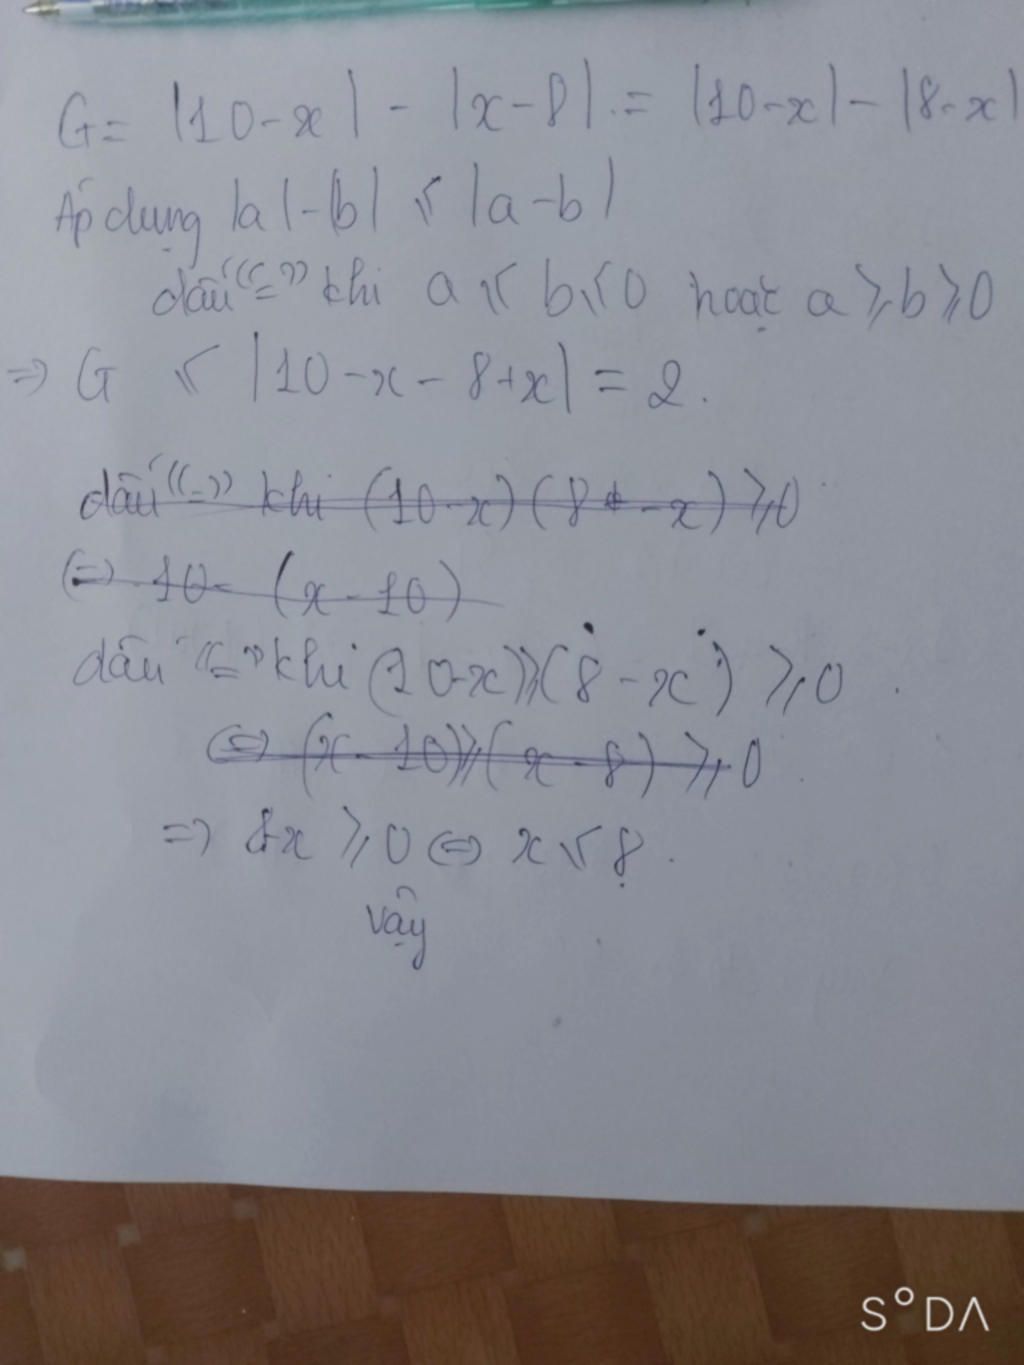 G = |10-x| - |x-8| = |10-x| - |8-x|
Áp dụng |a|-|b| ≤ |a-b|
dấu "=" khi a ≤ b ≤ 0 hoặc a ≥ b ≥ 0
=> G ≤ |10-x-8+x| = 2.
dấu "=" khi (10-x)(8-x) ≥ 0
<=> 10- (x-10)
dấu "=" khi (10-x) ≥ (8-x) ≥ 0
<=> (x-10) ≥ (x-8) ≥ 0
=> 8-x ≥ 0 <=> x ≤ 8.
vậy
S°DA